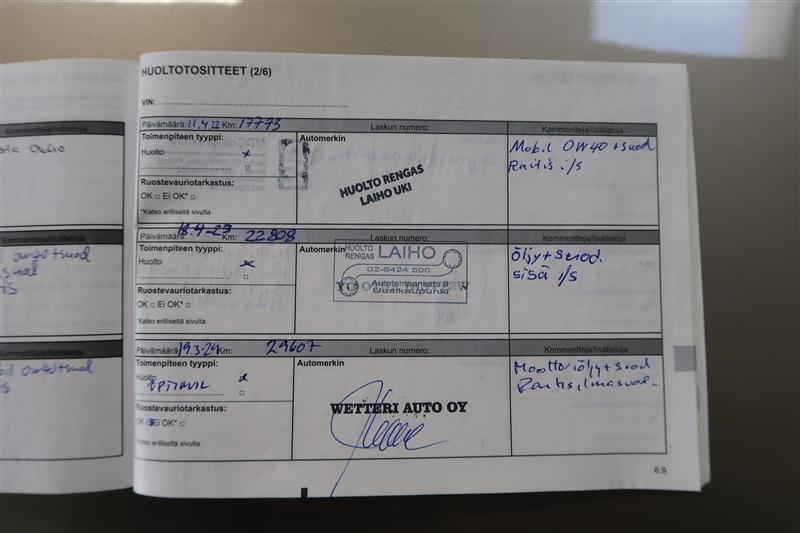 HUOLTOTOSITTEET (2/6)
VIN:
Päivämäärä: 11.4.22 Km: 17773 Laskun numero: Kommentteja/lisätietoja
Toimenpiteen tyyppi: Automerkin
Huolto x
Ruostevauriotarkastus:
OK □ Ei OK* □
*Katso erilliseltä sivulta
HUOLTO RENGAS
LAIHO UKI
Mobil OW40 + suod
Raitis i/s
Päivämäärä: 18.4-23 Km: 22808 Laskun numero: Kommentteja/lisätietoja
Toimenpiteen tyyppi: Automerkin
Huolto x
Ruostevauriotarkastus:
OK □ Ei OK* □
*Katso erilliseltä sivulta
HUOLTO
RENGAS LAIHO
02-8424 500
Autotehtaankatu 9
Uusikaupunki
öljy + suod.
sisä i/s
Päivämäärä: 19.3-24 Km: 29607 Laskun numero: Kommentteja/lisätietoja
Toimenpiteen tyyppi: Automerkin
Huolto x
Ruostevauriotarkastus:
OK Ei OK* □
*Katso erilliseltä sivulta
WETTERI AUTO OY
Moottoriöljy + suod
6.9
Kommentteja/lisätietoja
Kommentteja/lisätietoja
Kommentteja/lisätietoja